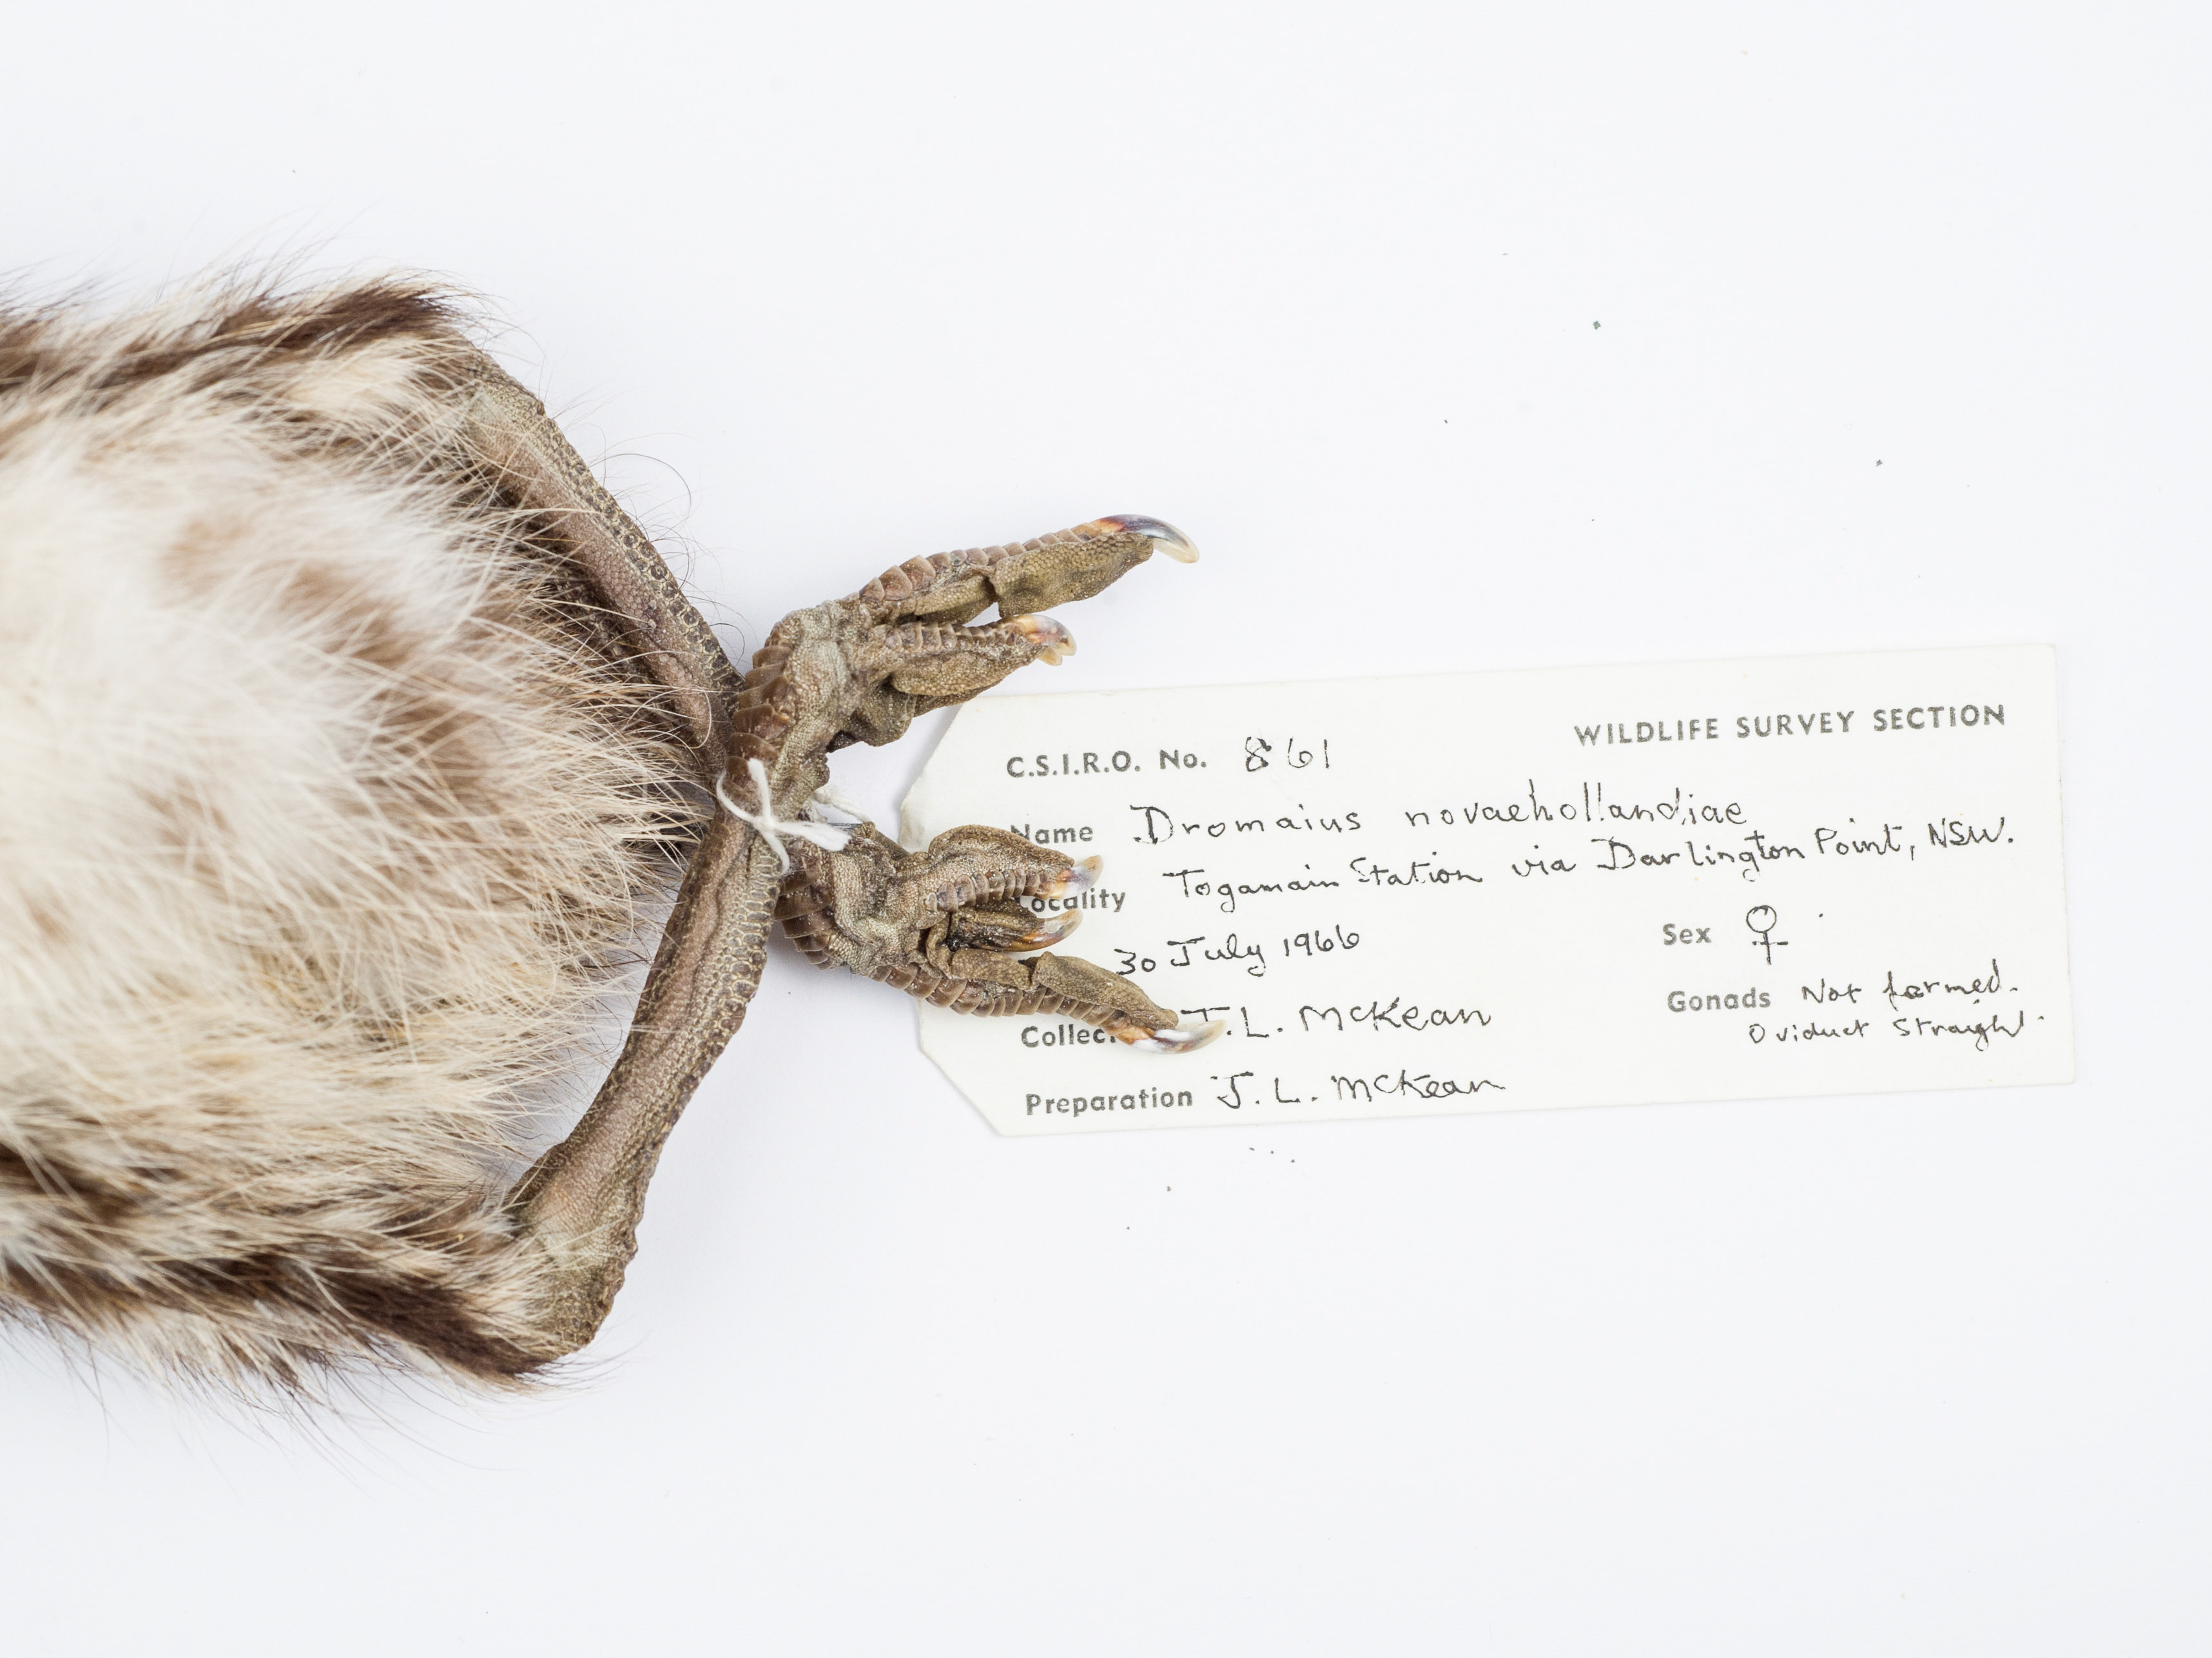 C.S.I.R.O. No. 861 WILDLIFE SURVEY SECTION
Name Dromaius novaehollandiae
Locality Togamain Station via Darlington Point, NSW.
30 July 1966 Sex ♀
Collec J.L. McKean Gonads Not formed.
Oviduct straight.
Preparation J. L. McKean